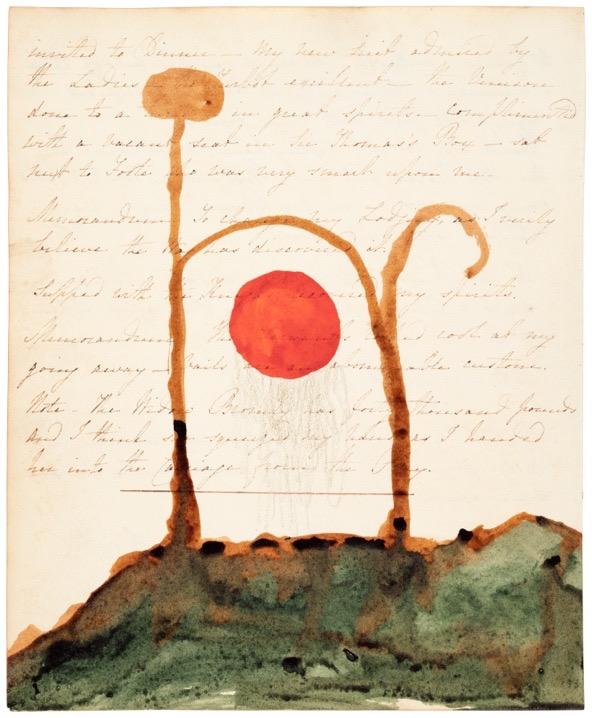 invited to Dinner — My new Suit admired by
the Ladies — Turbot excellent — the Venison
done to a in great spirits — complimented
with a vacant seat in Sir Thomas's Box — sat
next to Foote who was very smart upon me —
Memorandum To change my Lodging, as I verily
believe the has discovered it.
Supped with the my spirits.
Memorandum The and cook at my
going away — Vails are an abominable custom.
Note — The Widow has four thousand pounds
and I think she squeezed my hand as I handed
her into the Carriage from the Play.